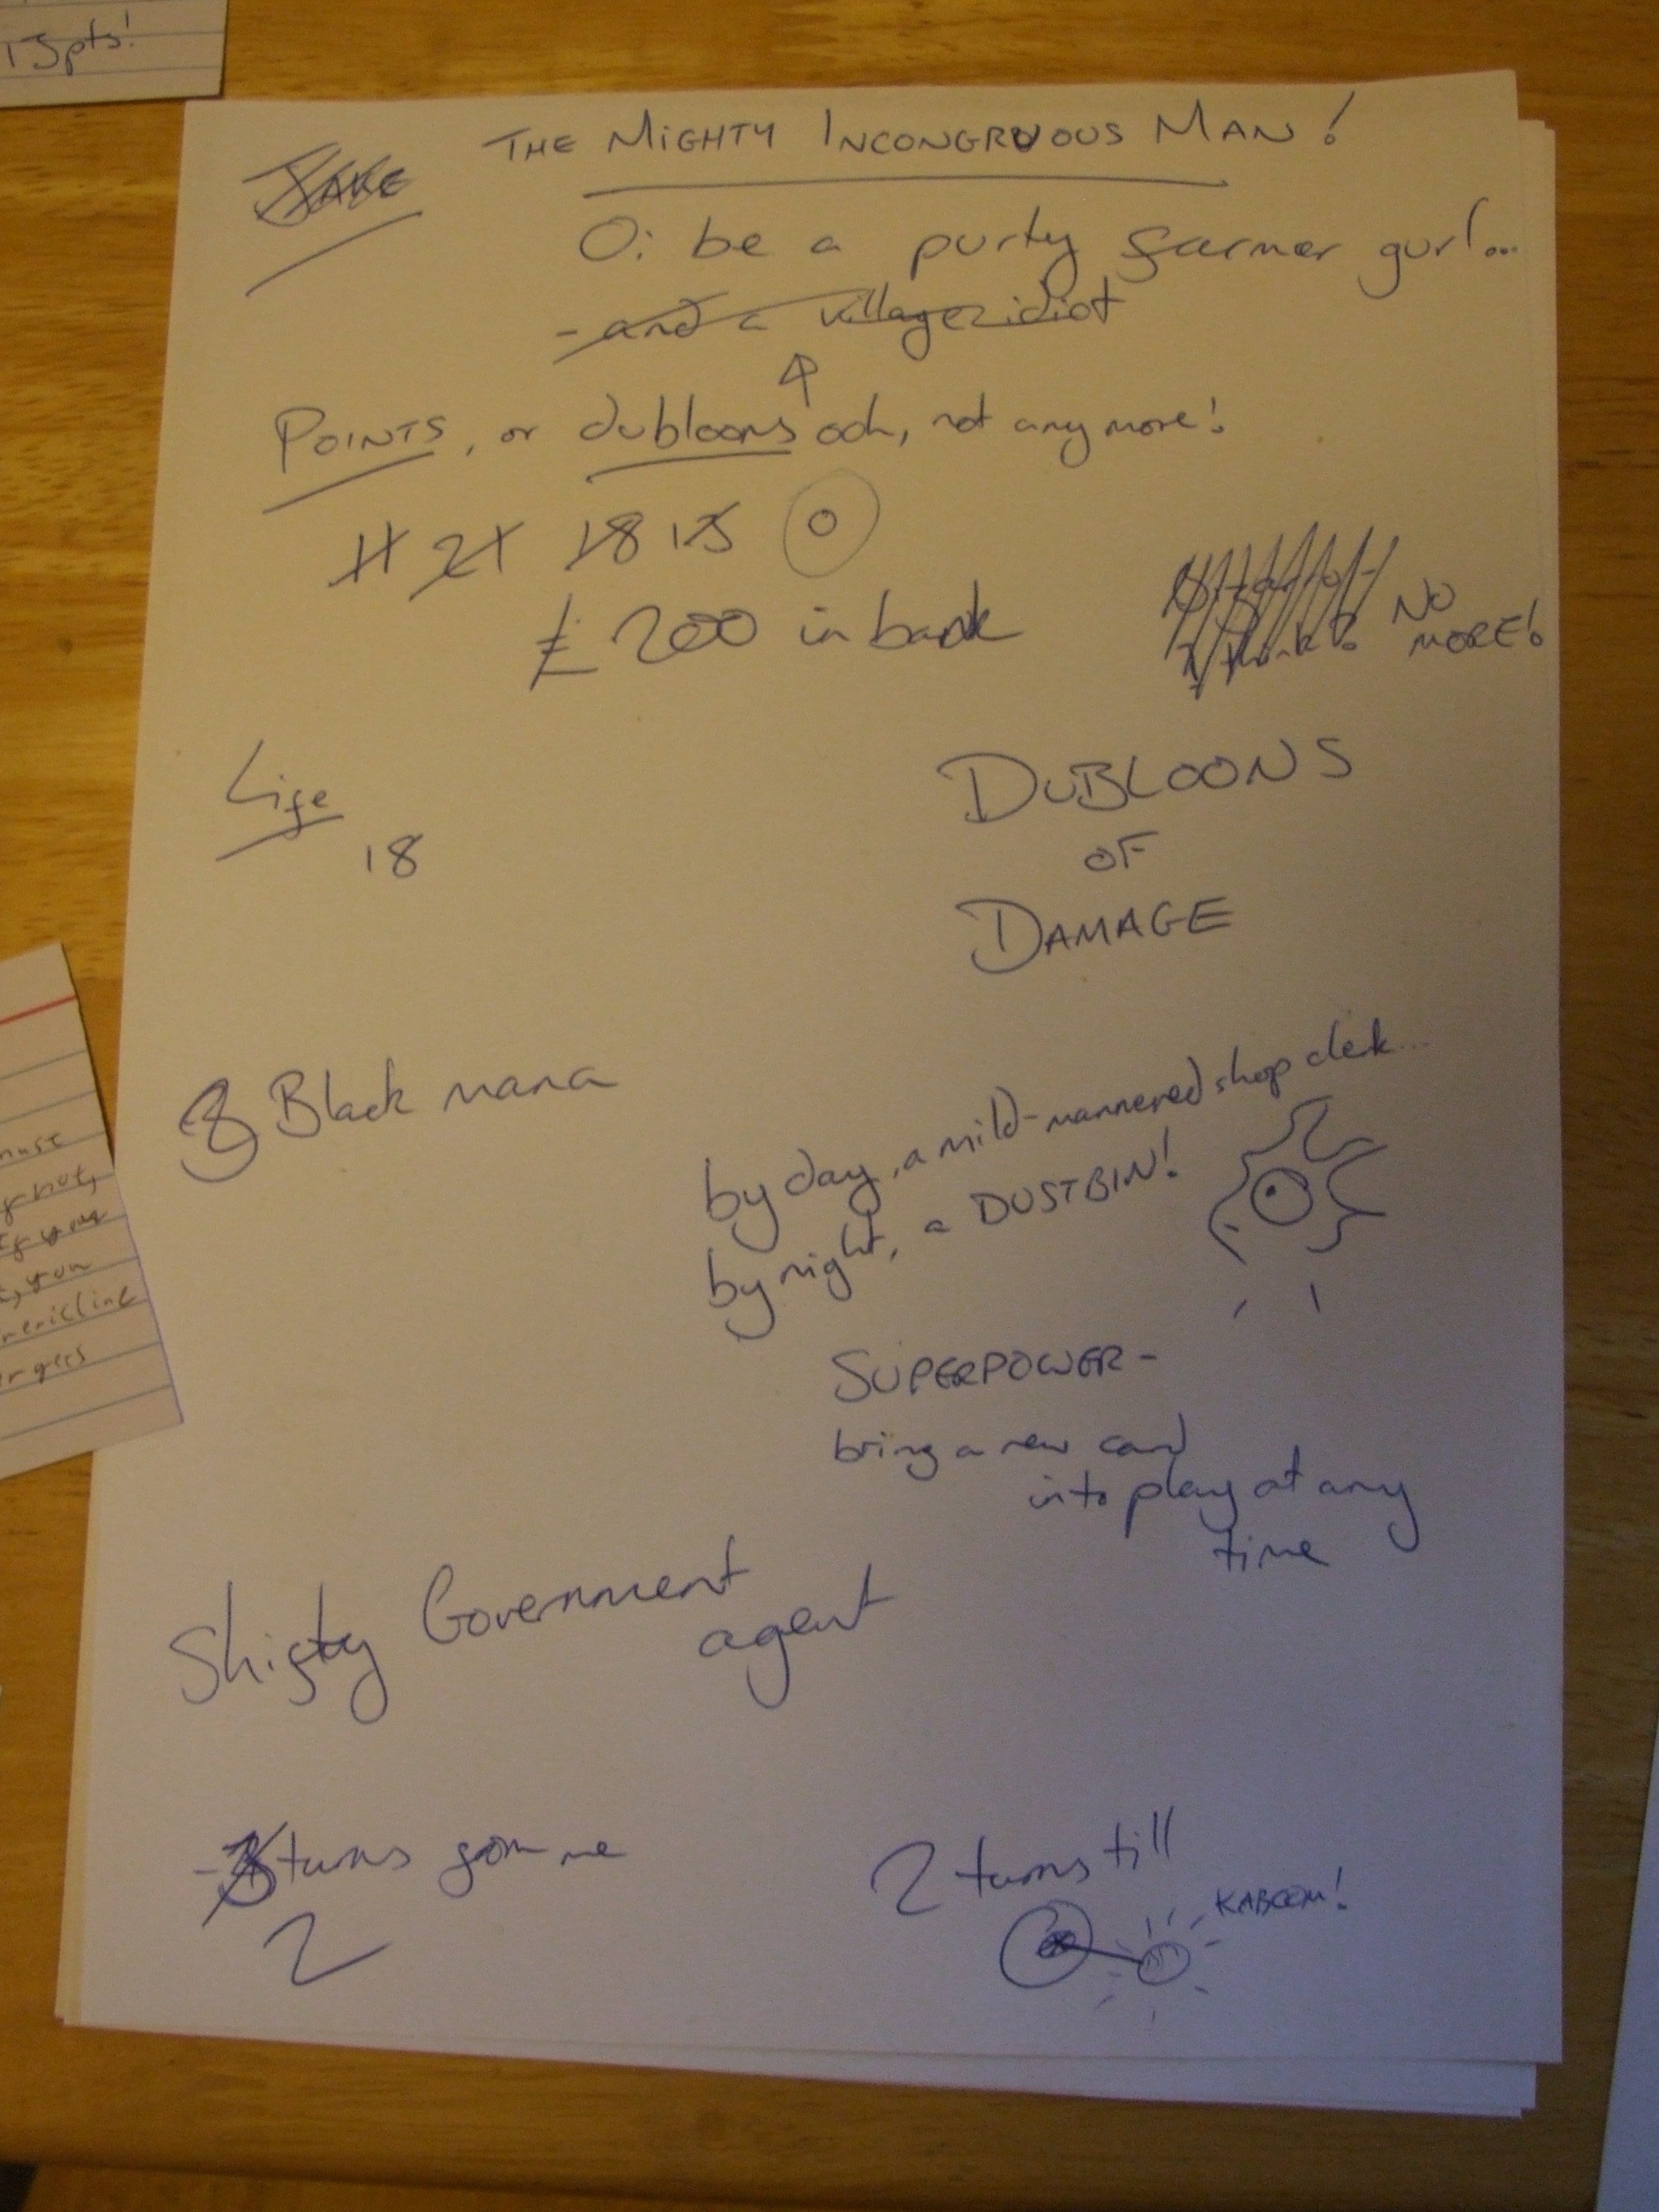 15pts!
JAKE
THE MIGHTY INCONGRUOUS MAN!
Oi be a purty farmer gurl...
- and a village idiot
POINTS, or dubloons och, not any more!
11 21 18 15 0
£200 in bank
NO
MORE!
Life
18
DUBLOONS
OF
DAMAGE
8 Black mana
by day, a mild-mannered shop clerk...
by night, a DUSTBIN!
SUPERPOWER-
bring a new card
into play at any
time
Shifty Government
agent
turns from me
2
2 turns till
KABOOM!
must
not,
you